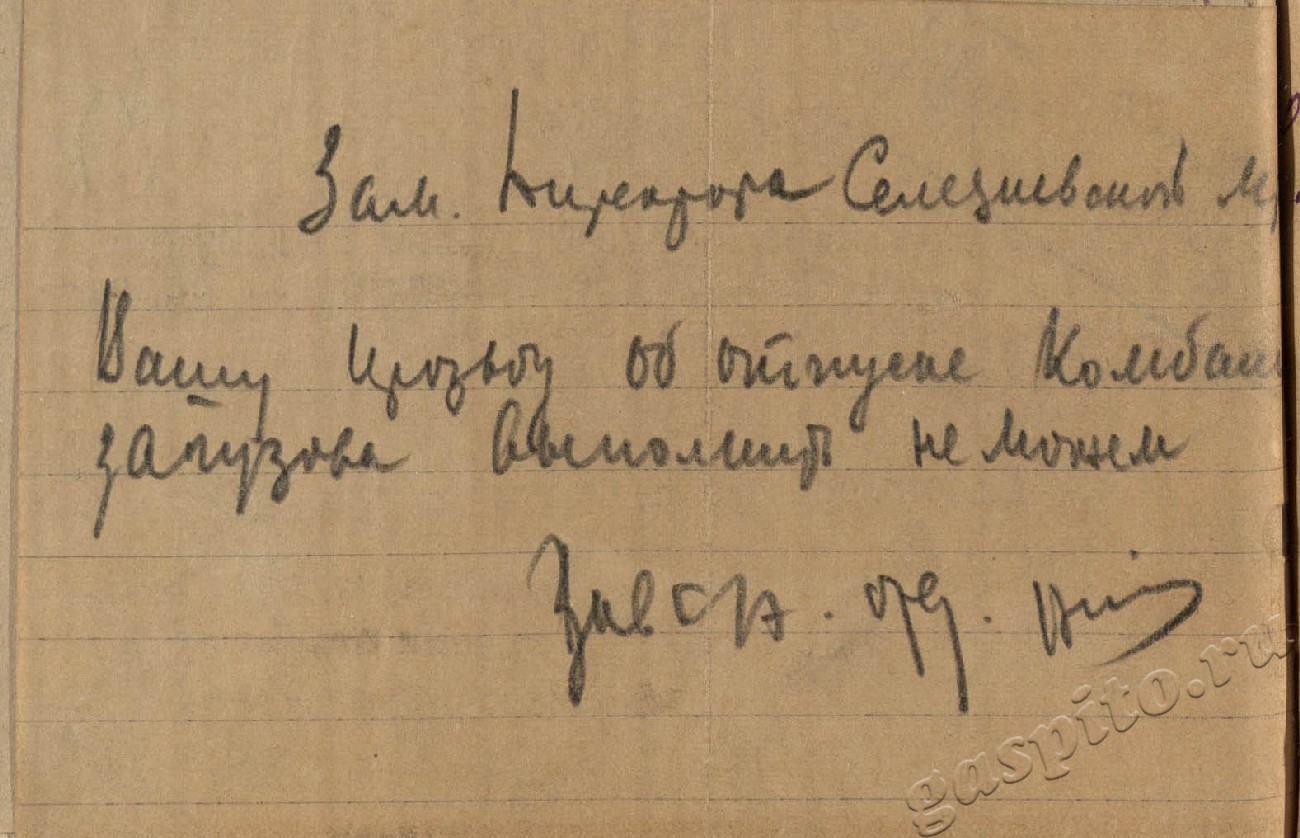 Зам. Директора Селезневской М
Вашу прозьбу об отпуске Комбай
запузова выполнить не можем
Зав . отд.
gaspito.ru